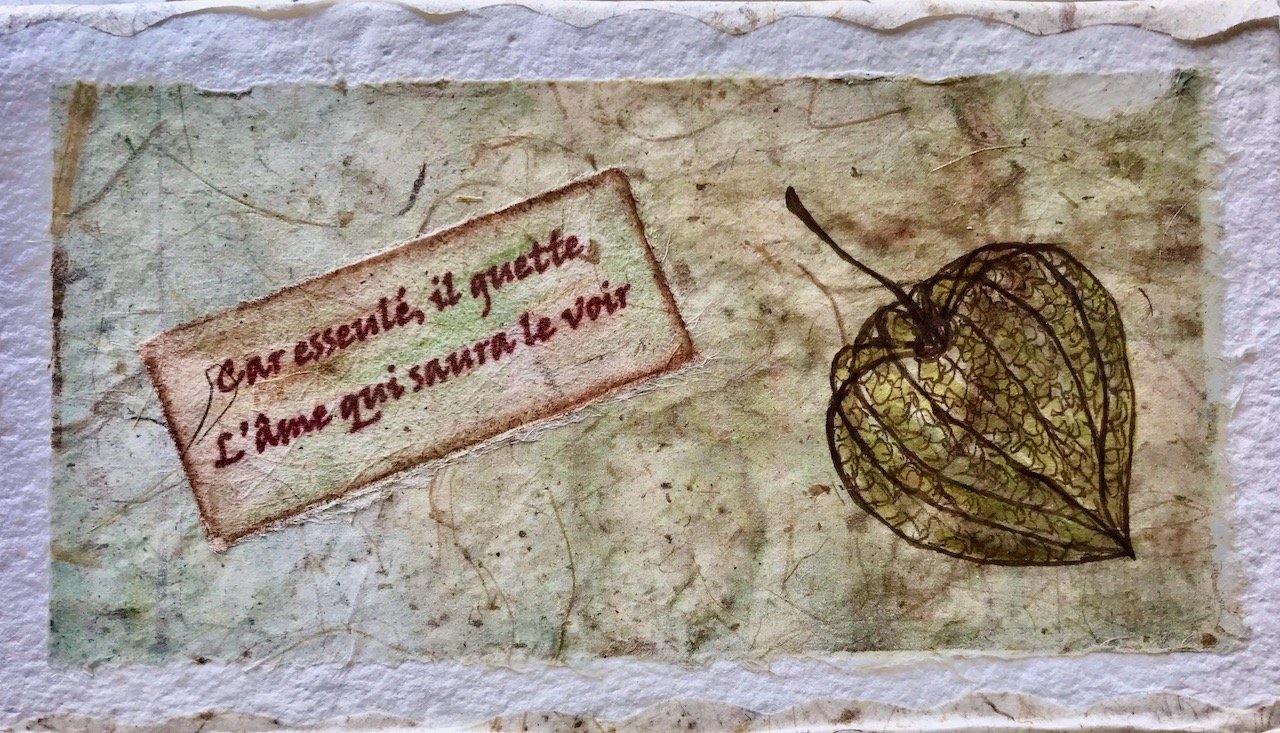 Car esseulé, il guette
L'âme qui saura le voir